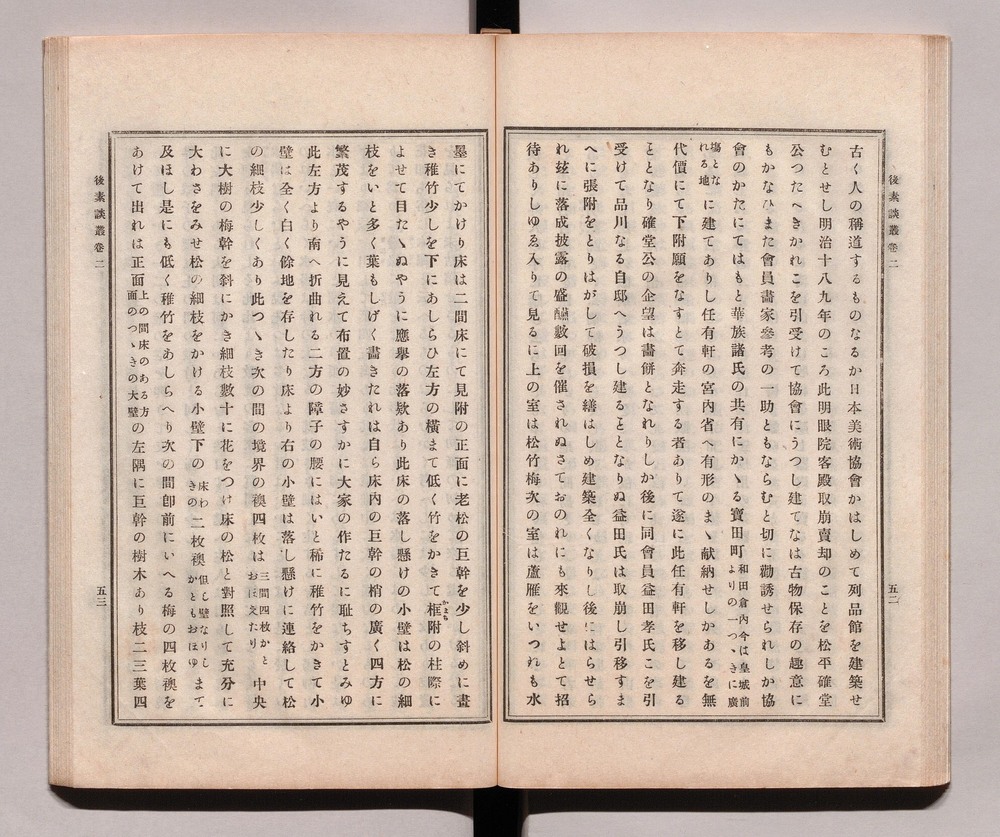 後素談叢卷二
五二
古く人の稱道するものなるか日本美術協會かはしめて列品館を建築せ
むとせし明治十八九年のころ此明眼院客殿取崩賣却のことを松平確堂
公つたへきかれこを引受けて協會にうつし建てなは古物保存の趣意に
もかなひまた會員畵家參考の一助ともならむと切に勸誘せられしか協
會のかたにてはもと華族諸氏の共有にかゝる寶田町和田倉內今は皇城前よりの一つゝきに廣
塲となれる地に建てありし任有軒の宮內省へ有形のまゝ献納せしかあるを無
代價にて下附願をなすとて奔走する者ありて遂に此任有軒を移し建る
ことなり確堂公の企望は畵餠となれりしか後に同會員益田孝氏こを引
受けて品川なる自邸へうつし建ることとなりぬ益田氏は取崩し引移すま
へに張附をとりはがして破損を繕はしめ建築全くなりし後にはらせら
れ玆に落成披露の盛醼數回を催されぬさておのれにも來觀せよとて招
待ありしゆゑ入りて見るに上の室は松竹梅次の室は蘆雁をいつれも水
墨にてかけり床は二間床にて見附の正面に老松の巨幹を少し斜めに畫
き稚竹少しを下にあしらひ左方の橫まて低く竹をかきて框附の柱際に
かまち
よせて目たゝぬやうに應擧の落欵あり此床の落し懸けの小壁は松の細
枝をいと多く葉もしげく畵きたれは自ら床內の巨幹の梢の廣く四方に
繁茂するやうに見えて布置の妙さすかに大家の作たるに耻ちすとみゆ
此左方より南へ折曲れる二方の障子の腰にはいと稀に稚竹をかきて小
壁は全く白く餘地を存したり床より右の小壁は落し懸けに連絡して松
の細枝少しくあり此つゝき次の間の境界の襖四枚は三間四枚かとおほえたり中央
に大樹の梅幹を斜にかき細枝數十に花をつけ床の松と對照して充分に
大わさをみせ松の細枝をかける小壁下の床わきの二枚襖但し壁なりしかともおほゆまて
及ほし是にも低く稚竹をあしらへり次の間卽前にいへる梅の四枚襖を
あけて出れは正面上の間床のある方面のつゝきの大壁の左隅に巨幹の樹木あり枝二三葉四
後素談叢卷二
五三